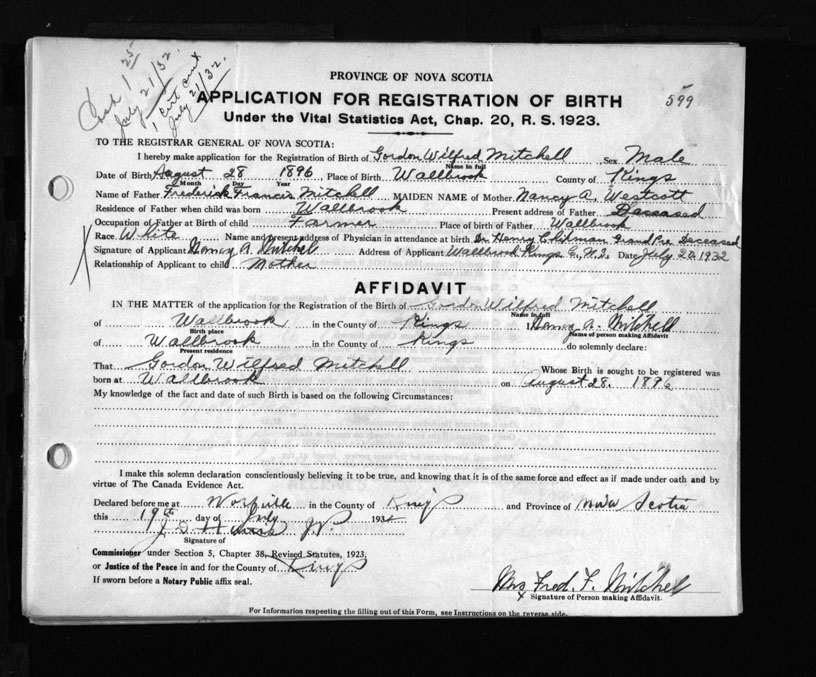 Cash 1 25
July 21/32.
1 Cert sent
July 21/32.
PROVINCE OF NOVA SCOTIA
APPLICATION FOR REGISTRATION OF BIRTH
599
Under the Vital Statistics Act, Chap. 20, R. S. 1923.
TO THE REGISTRAR GENERAL OF NOVA SCOTIA:
I hereby make application for the Registration of Birth of Gordon Wilfred Mitchell Sex Male
Name in full
Date of Birth August 28 1896 Place of Birth Wallbrook County of Kings
Month Day Year
Name of Father Frederick Francis Mitchell MAIDEN NAME of Mother Nancy A. Westcott
Residence of Father when child was born Wallbrook Present address of Father Deceased
Occupation of Father at Birth of child Farmer Place of birth of Father Wallbrook
Race White Name and present address of Physician in attendance at birth Dr Henry Chipman Grand Pre Deceased
Signature of Applicant Nancy A Mitchell Address of Applicant Wallbrook Kings Co. N.S. Date July 20 1932
Relationship of Applicant to child Mother
AFFIDAVIT
IN THE MATTER of the application for the Registration of the Birth of Gordon Wilfred Mitchell
Name in full
of Wallbrook in the County of Kings I Nancy A. Mitchell
Birth place Name of person making Affidavit
of Wallbrook in the County of Kings do solemnly declare:
Present residence
That Gordon Wilfred Mitchell Whose Birth is sought to be registered was
born at Wallbrook on August 28. 1896
My knowledge of the fact and date of such Birth is based on the following Circumstances:
I make this solemn declaration conscientiously believing it to be true, and knowing that it is of the same force and effect as if made under oath and by
virtue of The Canada Evidence Act.
Declared before me at Wolfville in the County of Kings and Province of Nova Scotia
this 19th day of July 1932
J.P.
Signature of
Commissioner under Section 5, Chapter 38, Revised Statutes, 1923,
or Justice of the Peace in and for the County of Kings
If sworn before a Notary Public affix seal.
Mrs Fred. F. Mitchell
X Signature of Person making Affidavit.
For Information respecting the filling out of this Form, see Instructions on the reverse side.